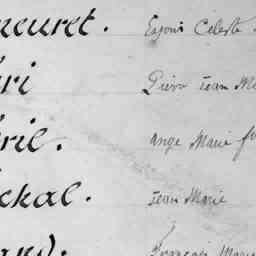 neuret. Céleste
ri Pierre Jean M
ril. ange Marie f
ckal. Jean Marie
and. François Marie